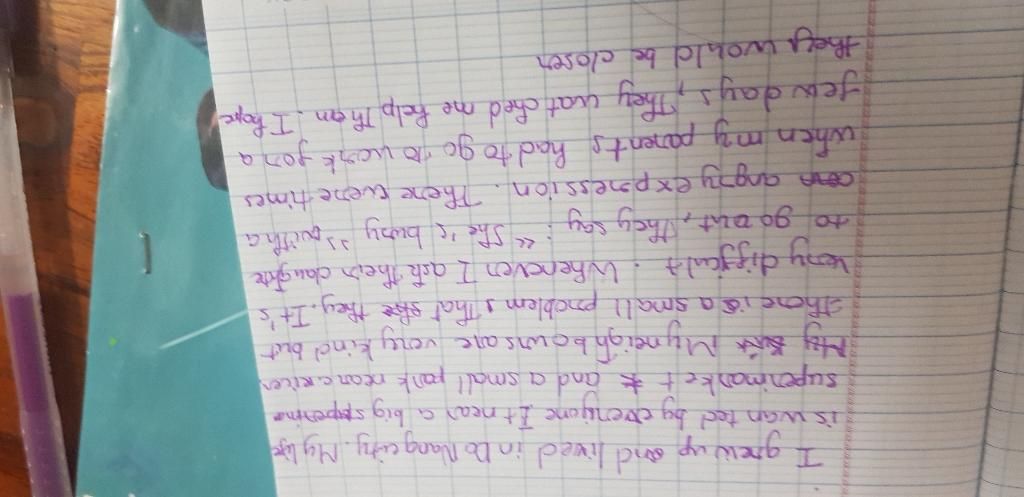 I grew up and lived in Da Nang city. My life
is wanted by everyone It near a big
supermarket and a small park near
My neighbours are very kind but
there is a small problem that they. It's
very difficult. Whenever I ask their daughte
to go out, they say: "she's busy" with a
angry expression. There were times
when my parents had to go to work for a
few days, They watched me help them. I hope
they would be closer